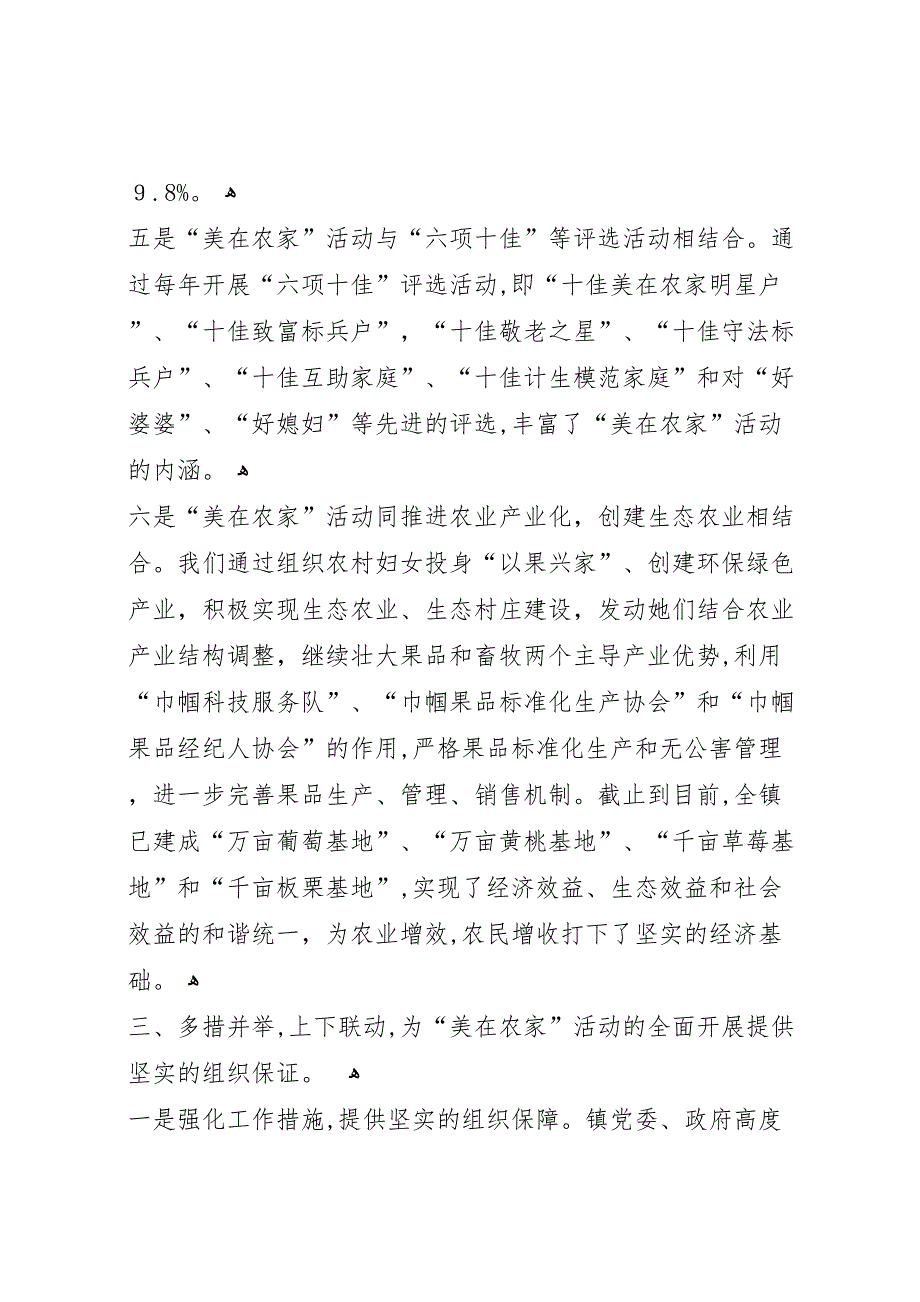 ９.8%。 ﻫ
五是“美在农家”活动与“六项十佳”等评选活动相结合。通
过每年开展“六项十佳”评选活动,即“十佳美在农家明星户
”、“十佳致富标兵户”，“十佳敬老之星”、“十佳守法标
兵户”、“十佳互助家庭”、“十佳计生模范家庭”和对“好
婆婆”、“好媳妇”等先进的评选,丰富了“美在农家”活动
的内涵。 ﻫ
六是“美在农家”活动同推进农业产业化，创建生态农业相结
合。我们通过组织农村妇女投身“以果兴家”、创建环保绿色
产业，积极实现生态农业、生态村庄建设，发动她们结合农业
产业结构调整，继续壮大果品和畜牧两个主导产业优势,利用
“巾帼科技服务队”、“巾帼果品标准化生产协会”和“巾帼
果品经纪人协会”的作用,严格果品标准化生产和无公害管理
，进一步完善果品生产、管理、销售机制。截止到目前,全镇
已建成“万亩葡萄基地”、“万亩黄桃基地”、“千亩草莓基
地”和“千亩板栗基地”,实现了经济效益、生态效益和社会
效益的和谐统一，为农业增效,农民增收打下了坚实的经济基
础。 ﻫ
三、多措并举,上下联动,为“美在农家”活动的全面开展提供
坚实的组织保证。 ﻫ
一是强化工作措施,提供坚实的组织保障。镇党委、政府高度